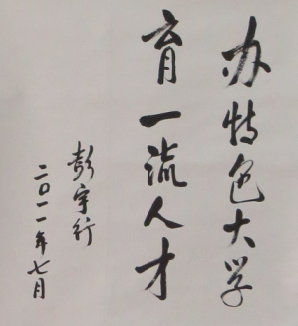 办特色大学
育一流人才
彭宇行
二〇一一年七月